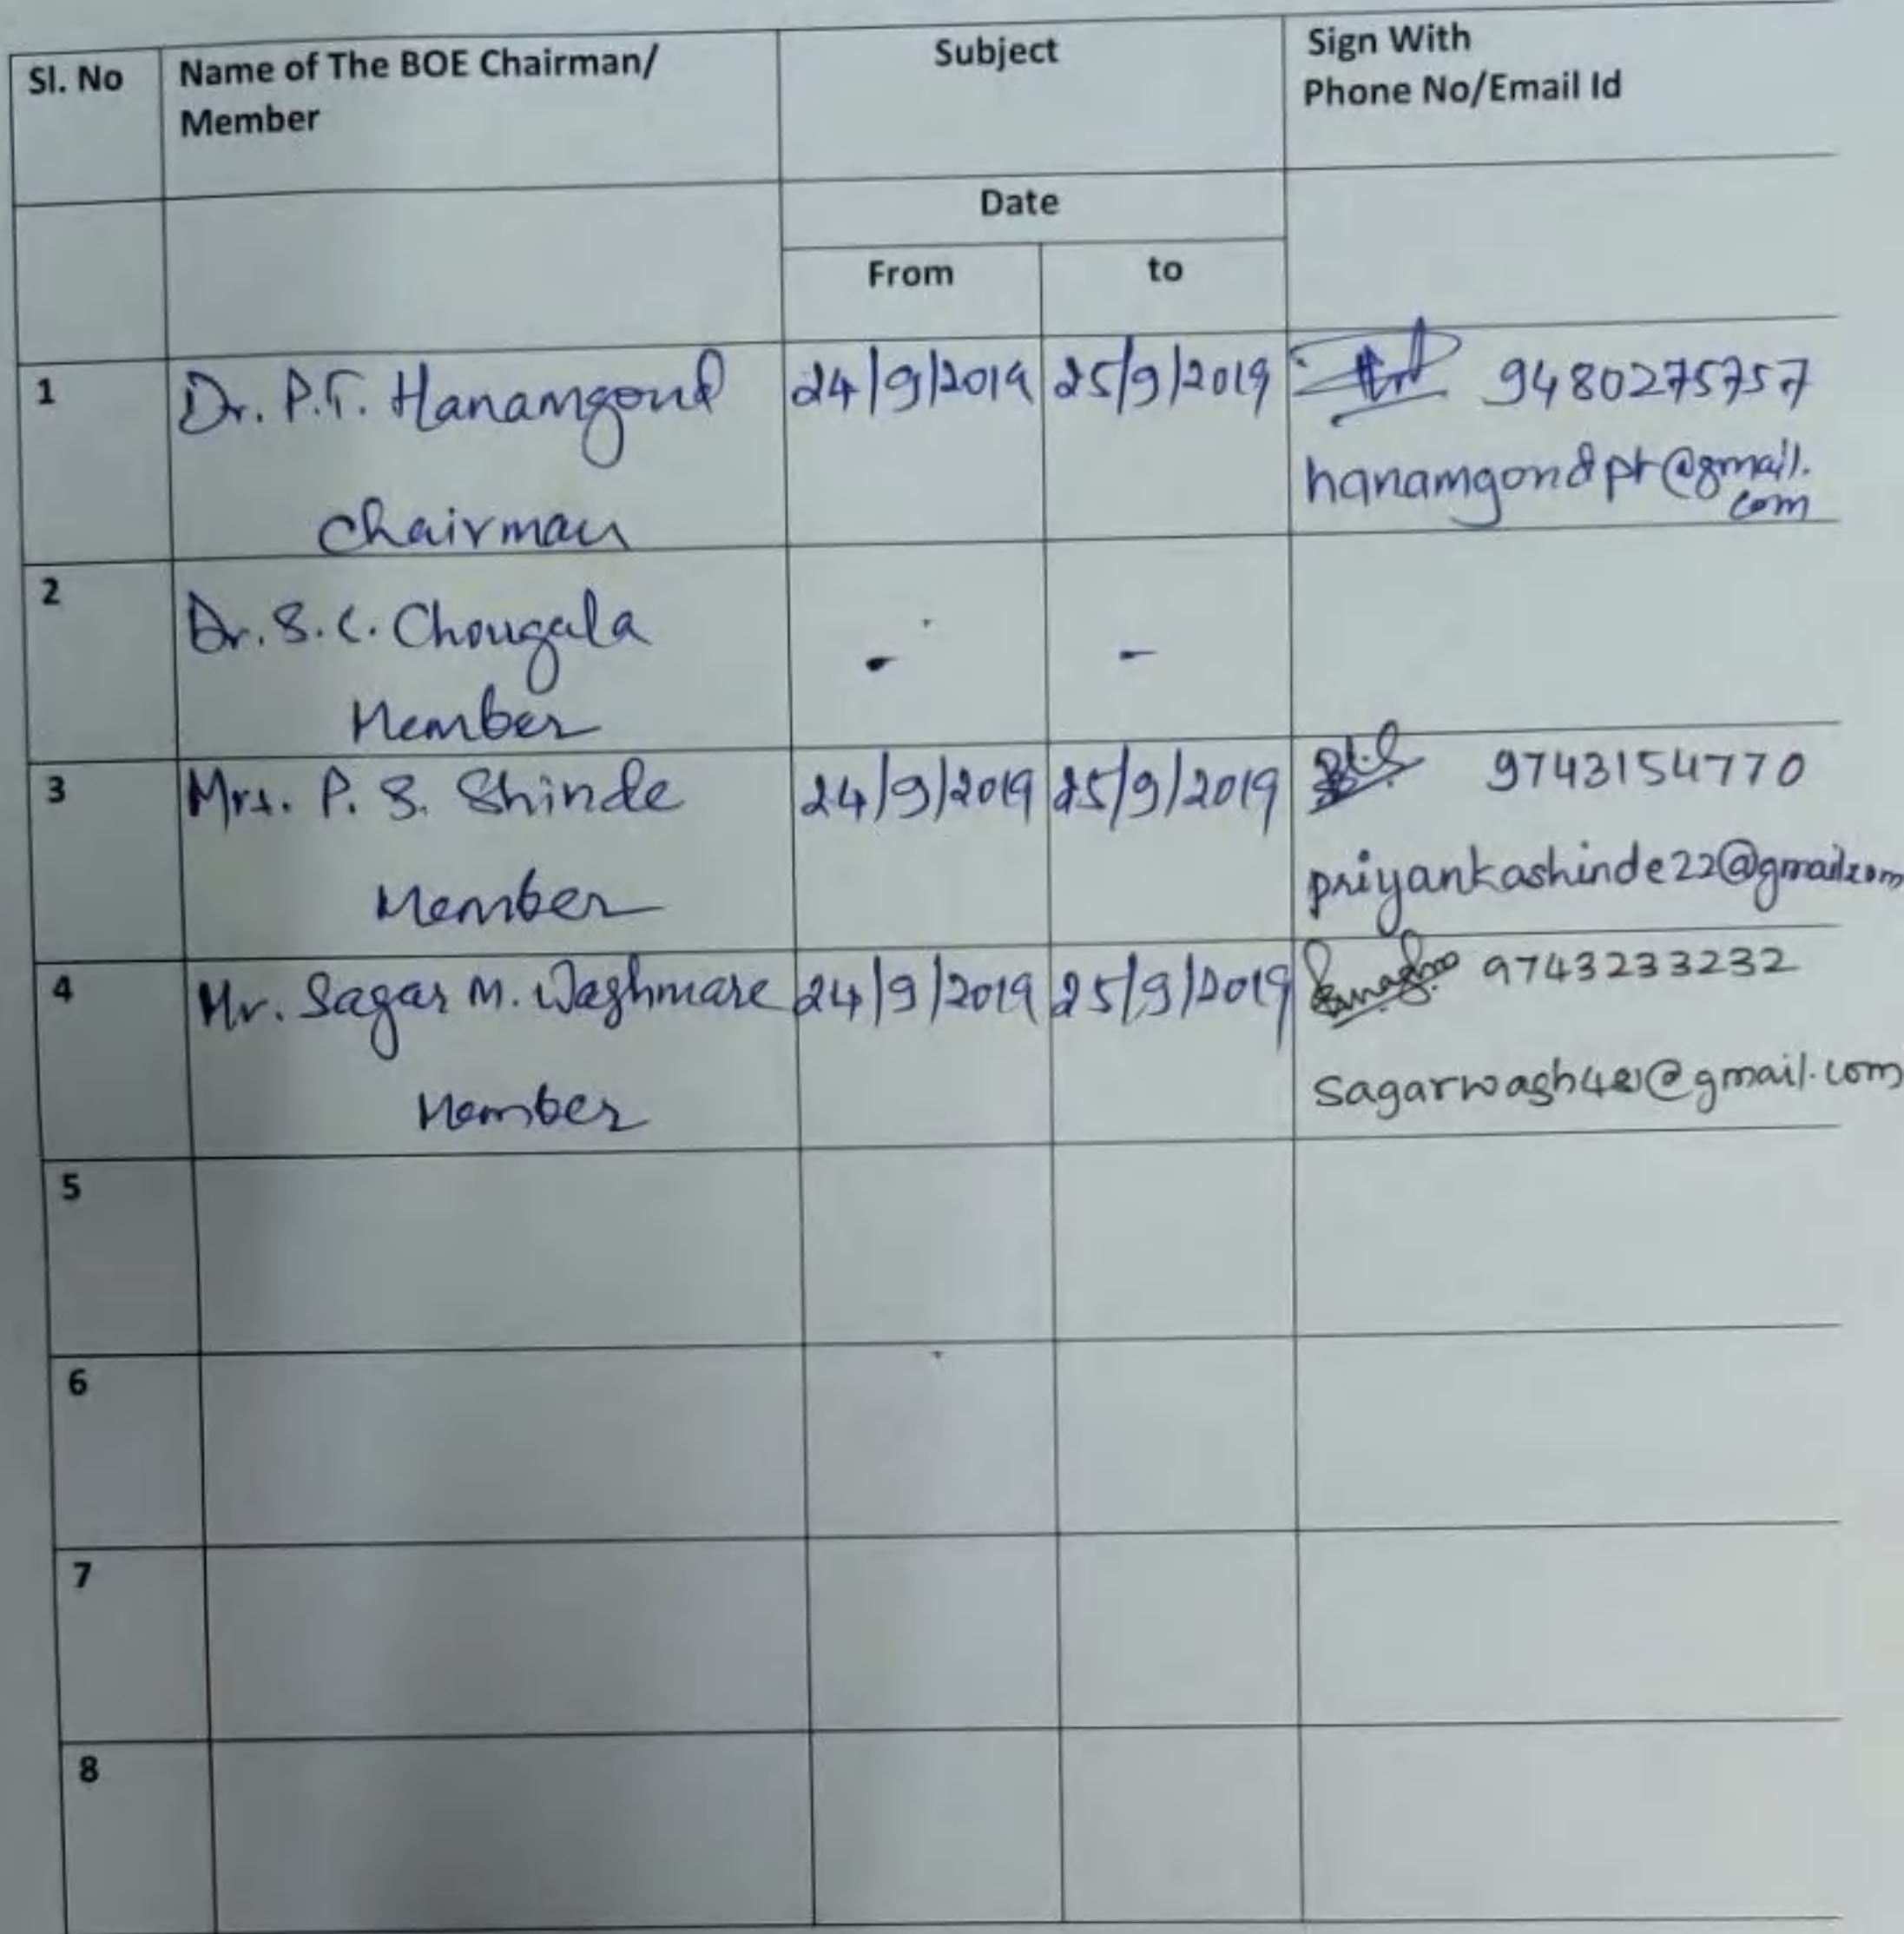 Sl. No
Name of The BOE Chairman/
Member
Subject
Sign With
Phone No/Email Id
Date
From
to
1
Dr. P.T. Hanamgond
Chairman
24/9/2019
25/9/2019
9480275757
hanamgondpt@gmail.
com
2
Dr. S.C. Chougala
Member
-
-
3
Mrs. P. S. Shinde
Member
24/9/2019
25/9/2019
9743154770
priyankashinde22@gmail.com
4
Mr. Sagar M. Waghmare
Member
24/9/2019
25/9/2019
9743233232
5
6
7
8